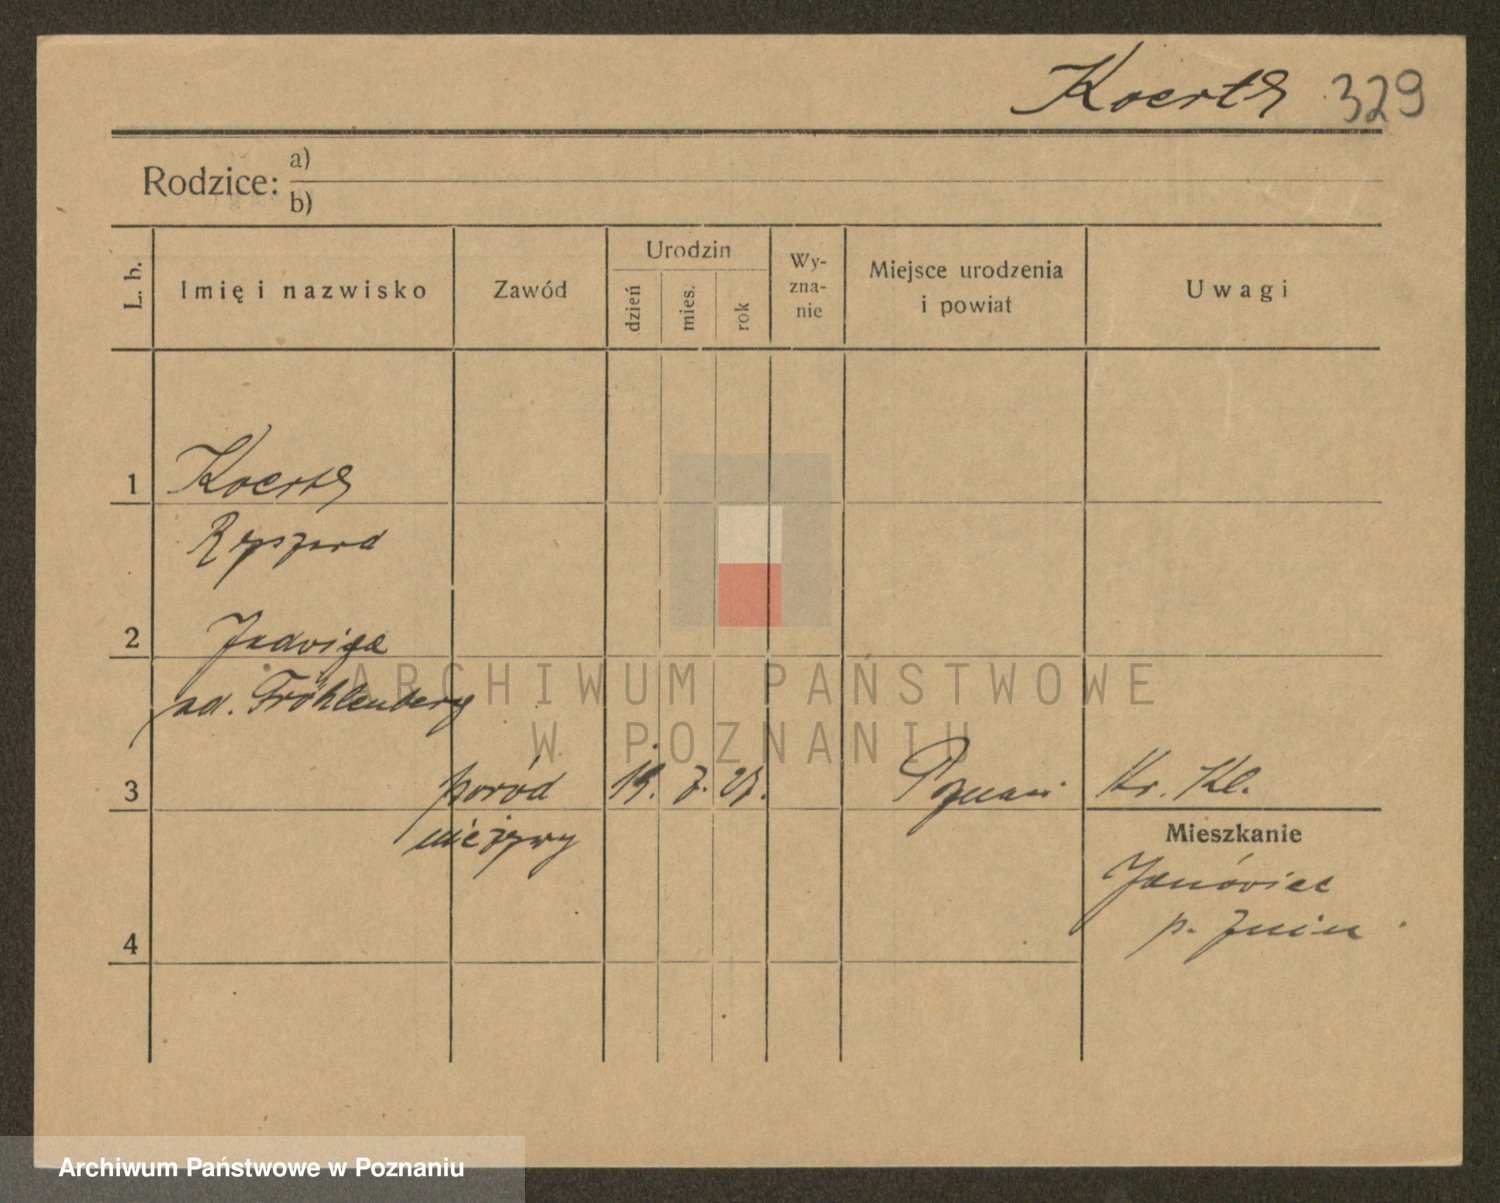 Koerth 329
Rodzice:
a)
b)
L. b.
Imię i nazwisko
Zawód
Urodzin
dzień
mies.
rok
Wy-
zna-
nie
Miejsce urodzenia
i powiat
Uwagi
1 Koerth
Ryszard
2 Jadwiga
Fröhlenberg
3 poród 19. 7. Poznań Kr. Kl.
nieżywy
Mieszkanie
Janówiec
p. Żnin
4
ARCHIWUM PAŃSTWOWE
W POZNANIU
Archiwum Państwowe w Poznaniu